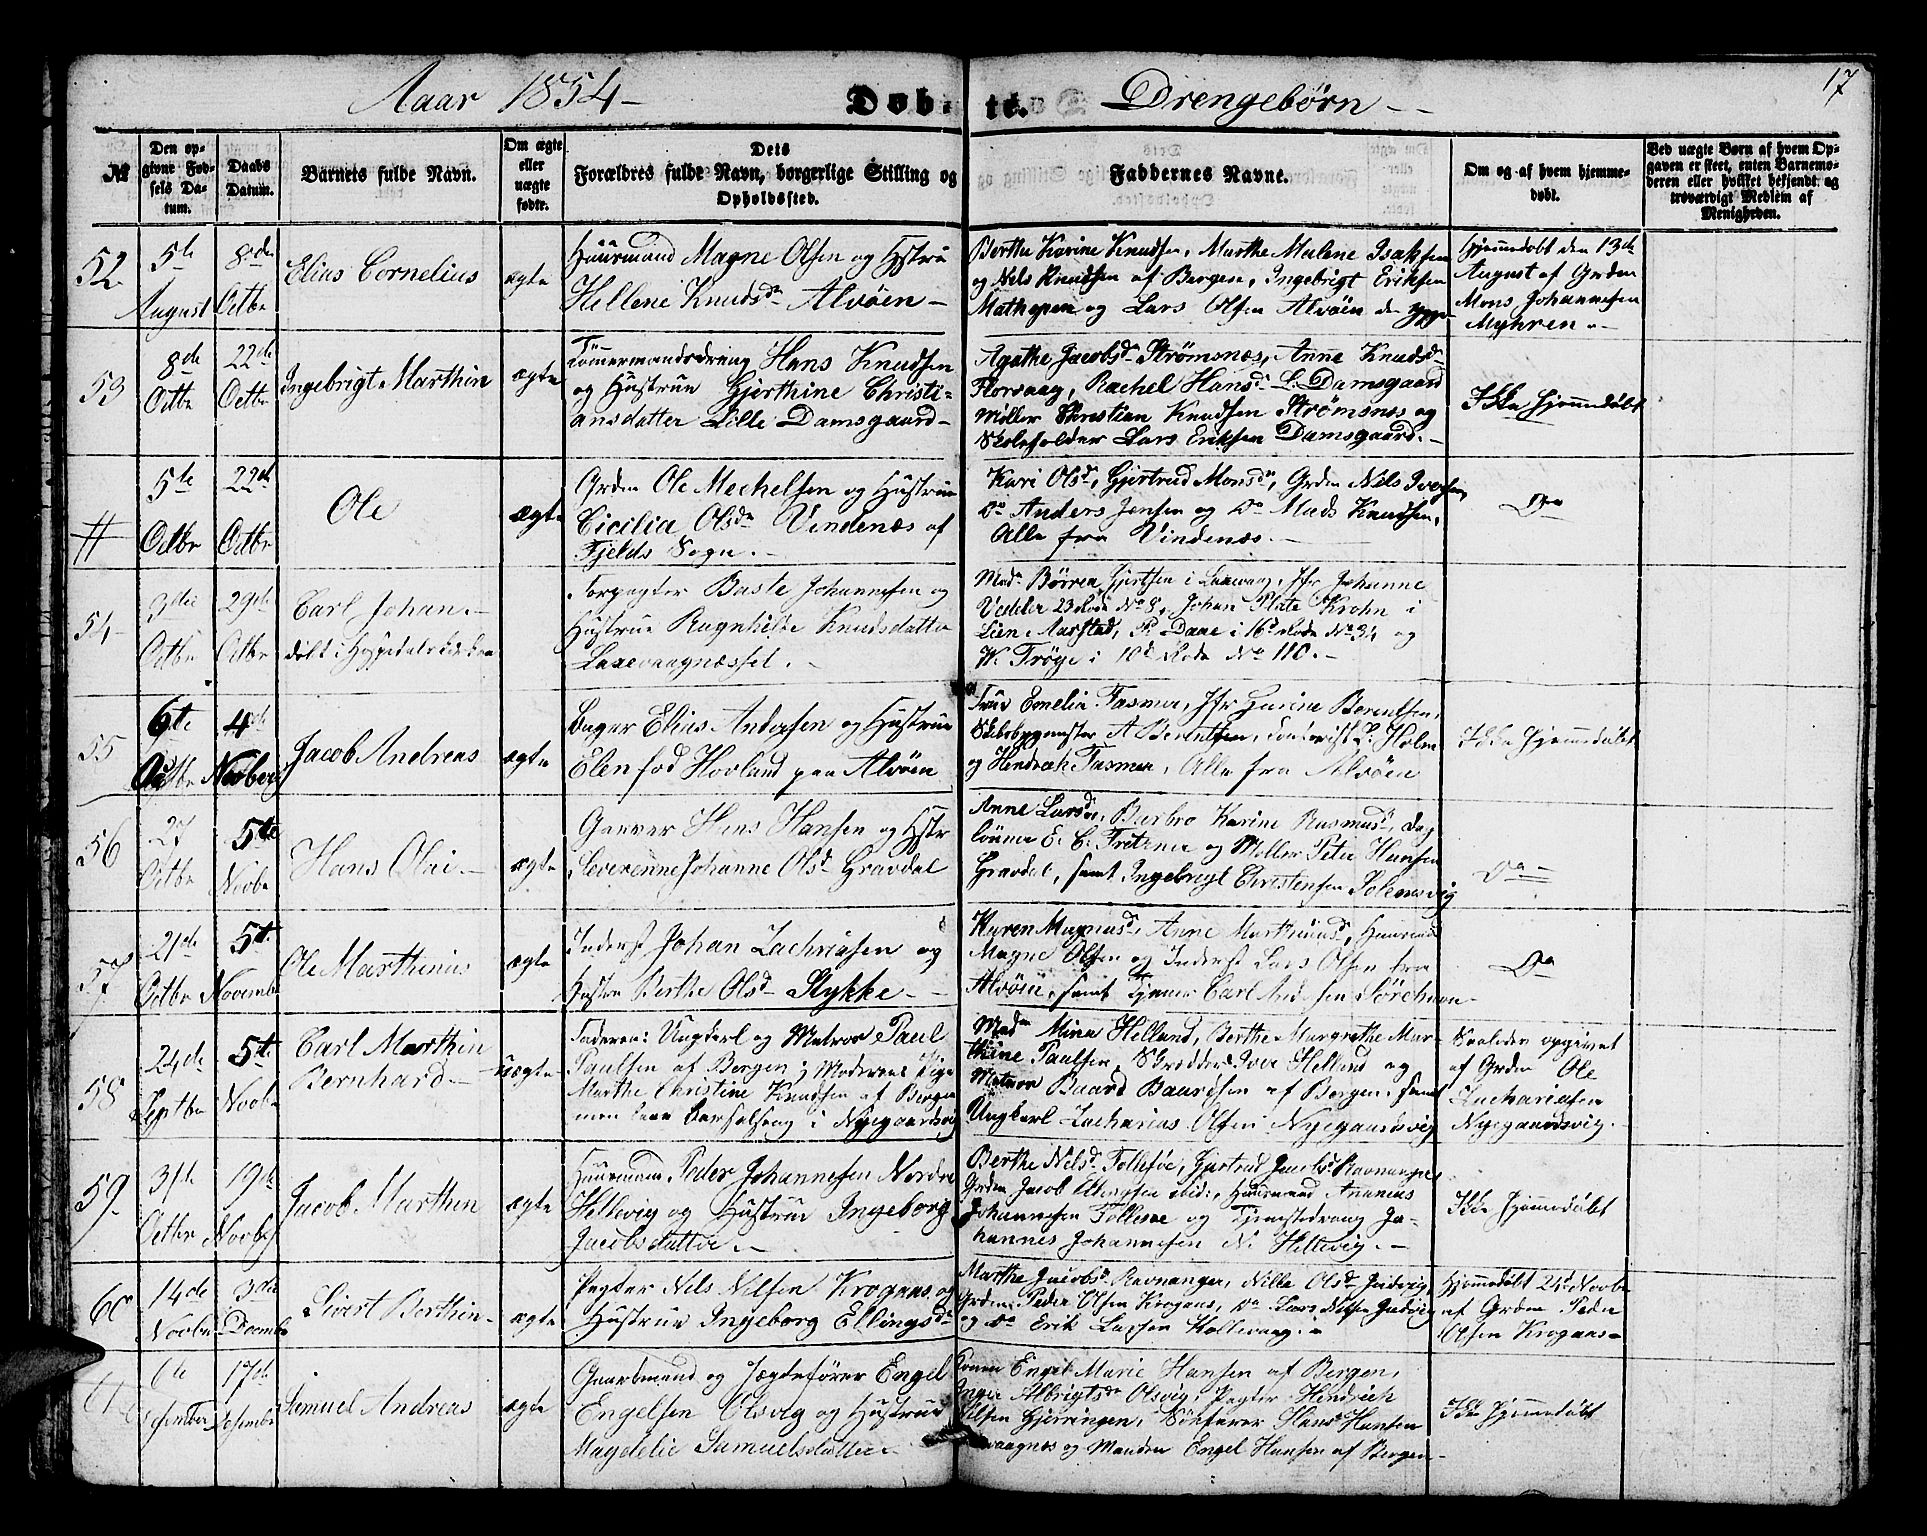 Aaar 1854 Døbte. Drengebørn 17
№
Den op-
givne Fød-
sels Da-
tum.
Daabs
Datum.
Barnets fulde Navn.
Om ægte
eller
uægte
fødtr.
Dets
Forældres fulde Navn, borgerlige Stilling og
Opholdssted.
Faddernes Navne.
Om og af hvem hjemme-
døbt.
Ved uægte Børn af hvem Op-
gaven er skeet, enten Barnemo-
deren eller hvilket bekjendt og
troværdigt Medlem af
Menigheden.
52
5te
August
8de
Octbr
Elias Cornelius
ægte
Huurmand Magne Olsen og Hstru
Hellene Knudsdr Alvøen
Berthe Karine Knudsen, Marthe Malene Isaksen
og Nils Knudsen af Bergen, Ingebrigt Eriksen
Mathopen og Lars Olsen Alvøen
Hjemmedøbt den 13de
August af Grdm
Mons Johannesen
Myhren
53
8de
Octbr
22de
Octbr
Ingebrigt Marthin
ægte
Tømmermandsdreng Hans Knudsen
og Hustrue Gjerthine Christi-
ansdatter Lille Damsgaard
Agathe Jacobsdr Strømsnæs, Anne Knudsdr
Florvaag, Rachel Hansdr L. Damsgaard
Møller Christian Knudsen Strømsnæs og
Skoleholder Lars Eriksen Damsgaard.
Ikke hjemmedøbt
#
5te
Octbr
22de
Octbr
Ole
ægte
Grdm Ole Mechelsen og Hustrue
Cicilia Olsdr Vindenæs af
Fjelds Sogn.
Kari Olsdr, Gjertrud Monsdr, Grdm Nils Iversen,
Do Anders Jensen og Do Mads Knudsen,
Alle fra Vindenæs.
Do
54
3die
Octbr
29de
Octbr
Carl Johan
døbt i Hospitalskirken
Forpagter Baste Johannesen og
Hustrue Ragnhilde Knudsdatter
Laxevaagnæsset.
Madm Børren Gjertsen i Laxevaag, Jfr Johanne
Vedeler 23 Rode No 8, Johan Plate Krohn i
Lien, Marstad, P. Daae i 16d Rode No 34 og
W. Trøye i 10d Rode No 110.
55
6te
Octbr
4de
Novber
Jacob Andreas
ægte
Bager Elias Andersen og Hustrue
Elen fød Hovland paa Alvøen
Frue Emelie Fasmer, Jfr Berentsen,
Skibsbygmester A Berentsen, L. Holm
og Hendrich Fasmer, Alle fra Alvøen
Ikke hjemmedøbt
56
27
Octbr
5te
Novbr
Hans Olai
ægte
Garver Hans Hansen og Hstr
Severenne Johanne Olsdr Gravdal
Anne Larsdr, Barbro Karine Rasmusdr, Dag
lønner E. C. Fretzner og Møller Peter Hansen
Gravdal, samt Ingebrigt Christensen
Do
57
21de
Octbr
5te
Novembr
Ole Marthinus
ægte
Inderst Johan Zachriasen og
Hustru Berthe Olsdr Slykke
Karen Magnusdr, Anne Marthinusdr, Huurmd
Magne Olsen og Inderst Lars Olsen fra
Alvøen, samt Carl Andersen
Do
58
24de
Septbr
5te
Novbr
Carl Marthin
Bernhard
uægte
Faderen: Ungkarl og Matros Paul
Paulsen af Bergen; Moderen: Pige
Marthe Christine Knudsen af Bergen
men laae Barselseng i Nygaardsvig
Madm Mina Helland, Berthe Margrethe Mar-
thine Paulsen, Skrædder Iver Helland og
Matros Baard Baardsen af Bergen, samt
Ungkarl Zacharias Olsen Nygaardsvig
Saaledes opgivet
af Grdm Ole
Zachariasen
Nygaardsvig.
59
31te
Octbr
19de
Novbr
Jacob Marthin
ægte
Huurmand Peder Johannesen Nordre
Hellevig og Hustrue Ingeborg
Jacobsdatter.
Berthe Nilsdr Follesøe, Gjertrud Jacobsdr Ravnanger
Grdm Jacob ibid:, Huurmand Ananias
Johannesen Follesøe og Tjenstedreng Jo-
hannes Johannesen N. Hellevig.
Ikke hjemmedøbt
60
14de
Novbr
3die
Decmbr
Sivert Berthin
ægte
Pagter Nils Nilsen Krogaas og
Hustrue Ingeborg Ellingsdr
Marthe Jacobsdr Ravnanger, Nille Olsdr Juvig,
Grdm Peder Olsen Krogaas, Do Lars Juvig
og Do Erik Larsen
Hjemmedøbt 24de Novbr
af Grdm Peder
Olsen Krogaas
61
6te
December
17de
December
Samuel Andreas
ægte
Gaardmand og Jægtefører Engel
Engelsen Olsvig og Hustrue
Magdelie Samuelsdatter.
Konen Engel Marie Hansen af Bergen,
Inger Albrigtsdr Olsvig, Pagter Hindrich
Nilsen Gjerringen, Søefarer Hans Hansen
og Manden Engel Hansen af Bergen
Ikke hjemmedøbt